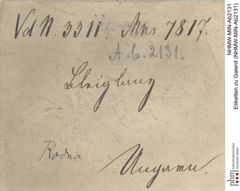 Vd N. 3311 Ans 7817.
A. b. 2131.
Bleiglanz
Rodna
Ungarn.
NHMW-MIN-Ab2131
Etiketten zu Galenit (NHMW-MIN-Ab2131)
nhm